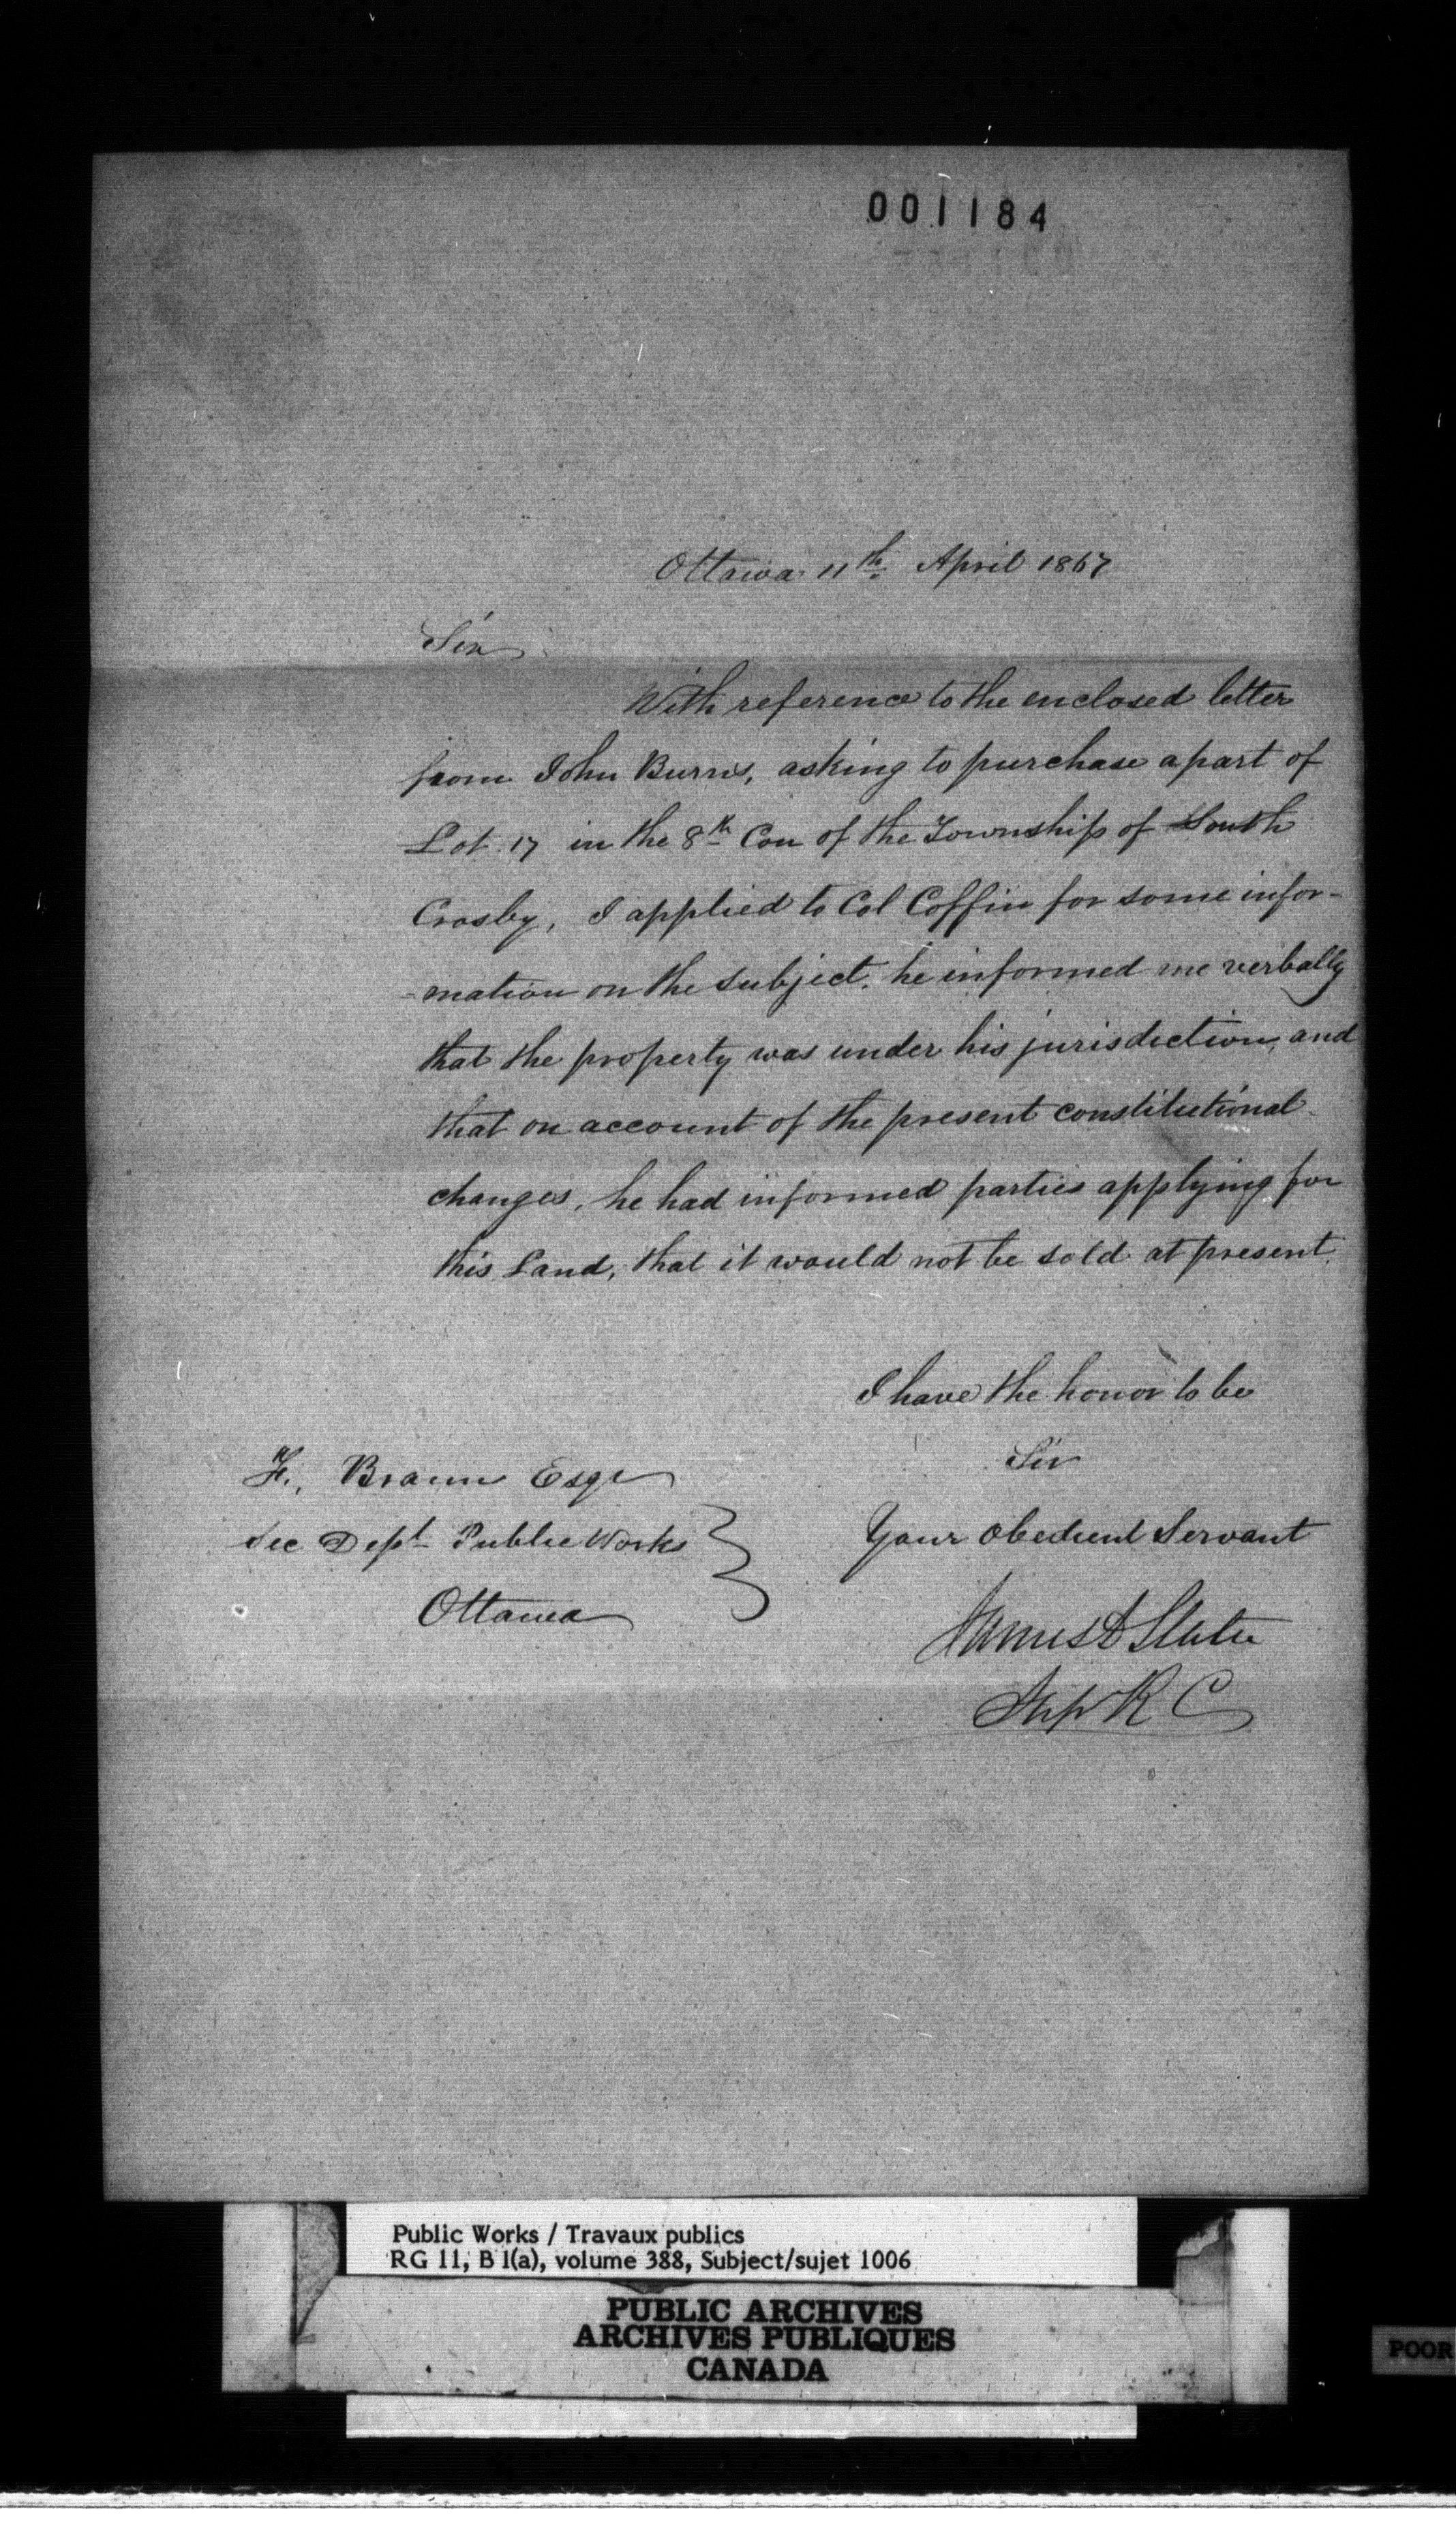 001184
Ottawa 11th April 1867
Sir
With reference to the enclosed letter
from John Burns, asking to purchase a part of
Lot 17 in the 8th Con of the Township of South
Crosby, I applied to Col Coffin for some infor-
-mation on the subject. he informed me verbally
that the property was under his jurisdiction, and
that on account of the present constitutional
changes, he had informed parties applying for
this Land, that it would not be sold at present.
I have the honor to be
Sir
Your Obedient Servant
James D Slater
Sup R C
F. Braun Esqr
Sec Dept Public Works
Ottawa
Public Works / Travaux publics
RG 11, B 1(a), volume 388, Subject/sujet 1006
PUBLIC ARCHIVES
ARCHIVES PUBLIQUES
CANADA
POOR